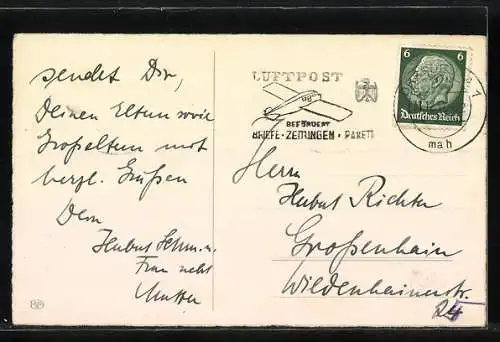 sendet Dir,
Deinen Eltern sowie
Großeltern mit
herzl. Grüßen
Dein
Herbert
Frau nebst
Mutter
88
LUFTPOST
BEFÖRDERT
BRIEFE · ZEITUNGEN · PAKETE
6 6
Deutsches Reich
1
mah
Herrn
Herbert Richter
Großenhain
Wildenhainerstr.